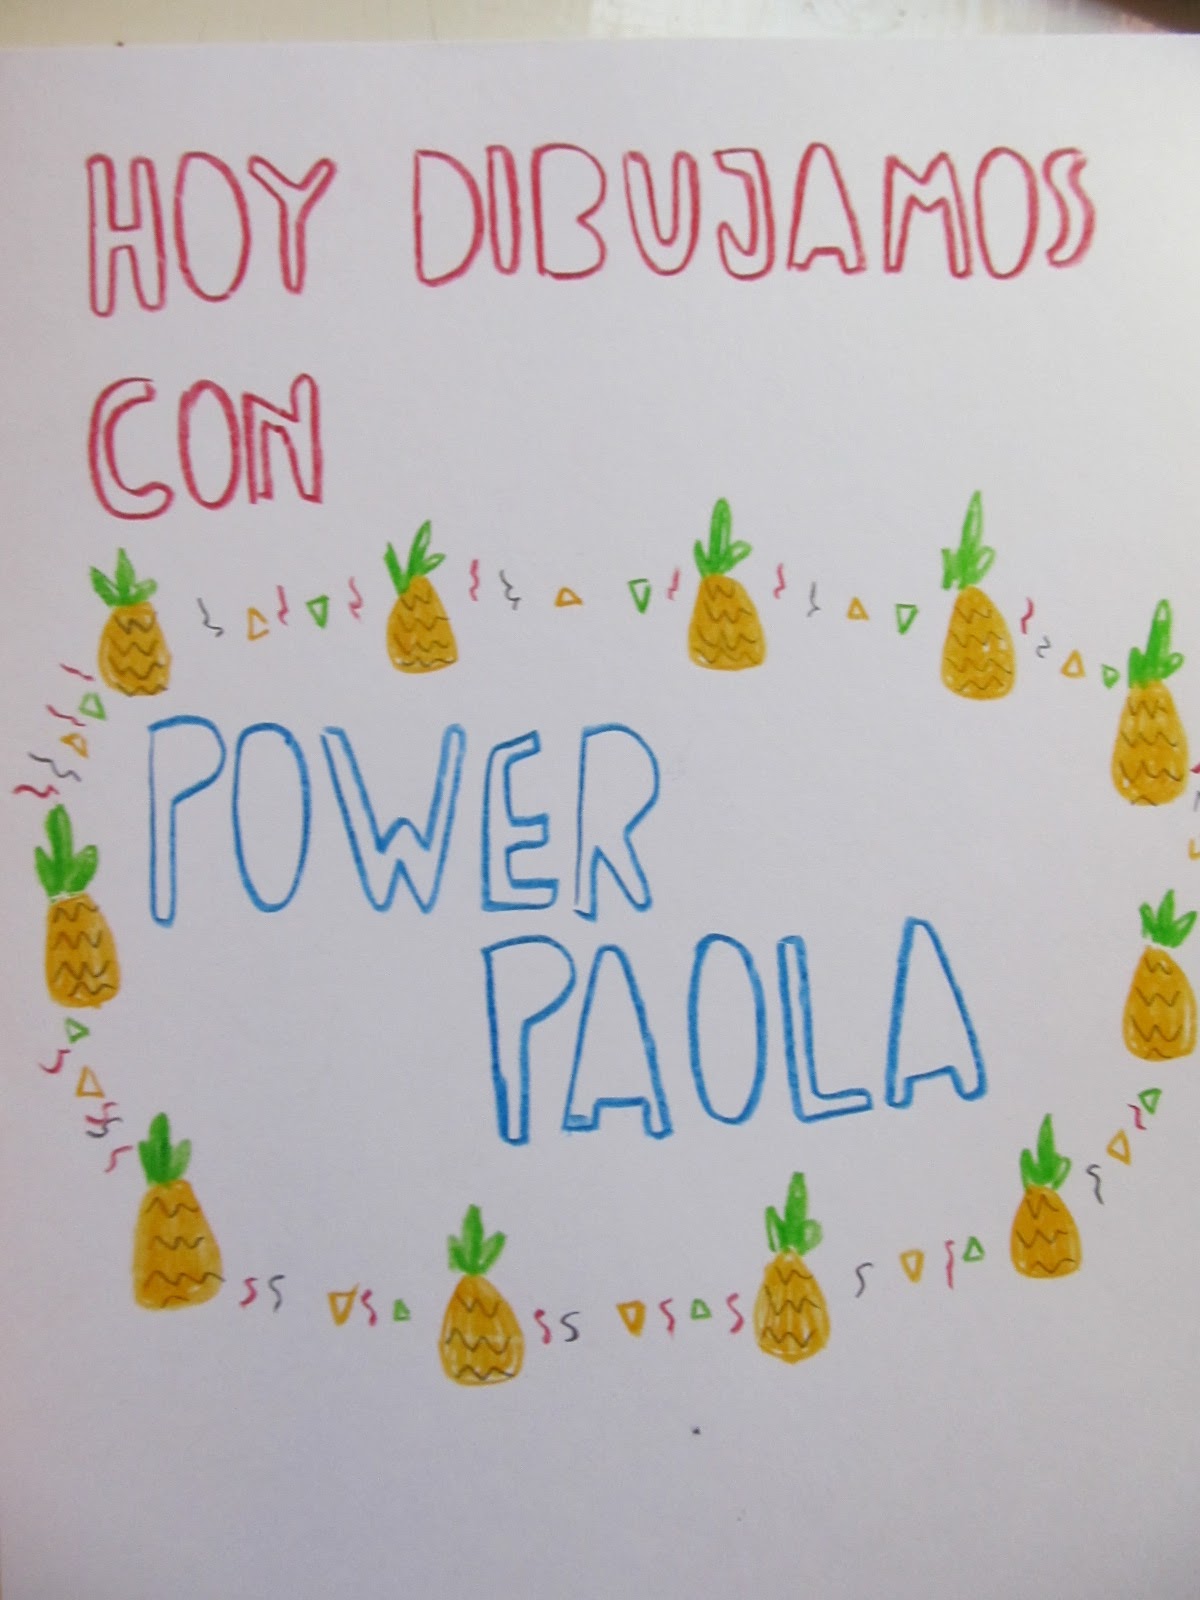 HOY DIBUJAMOS
CON
POWER
PAOLA